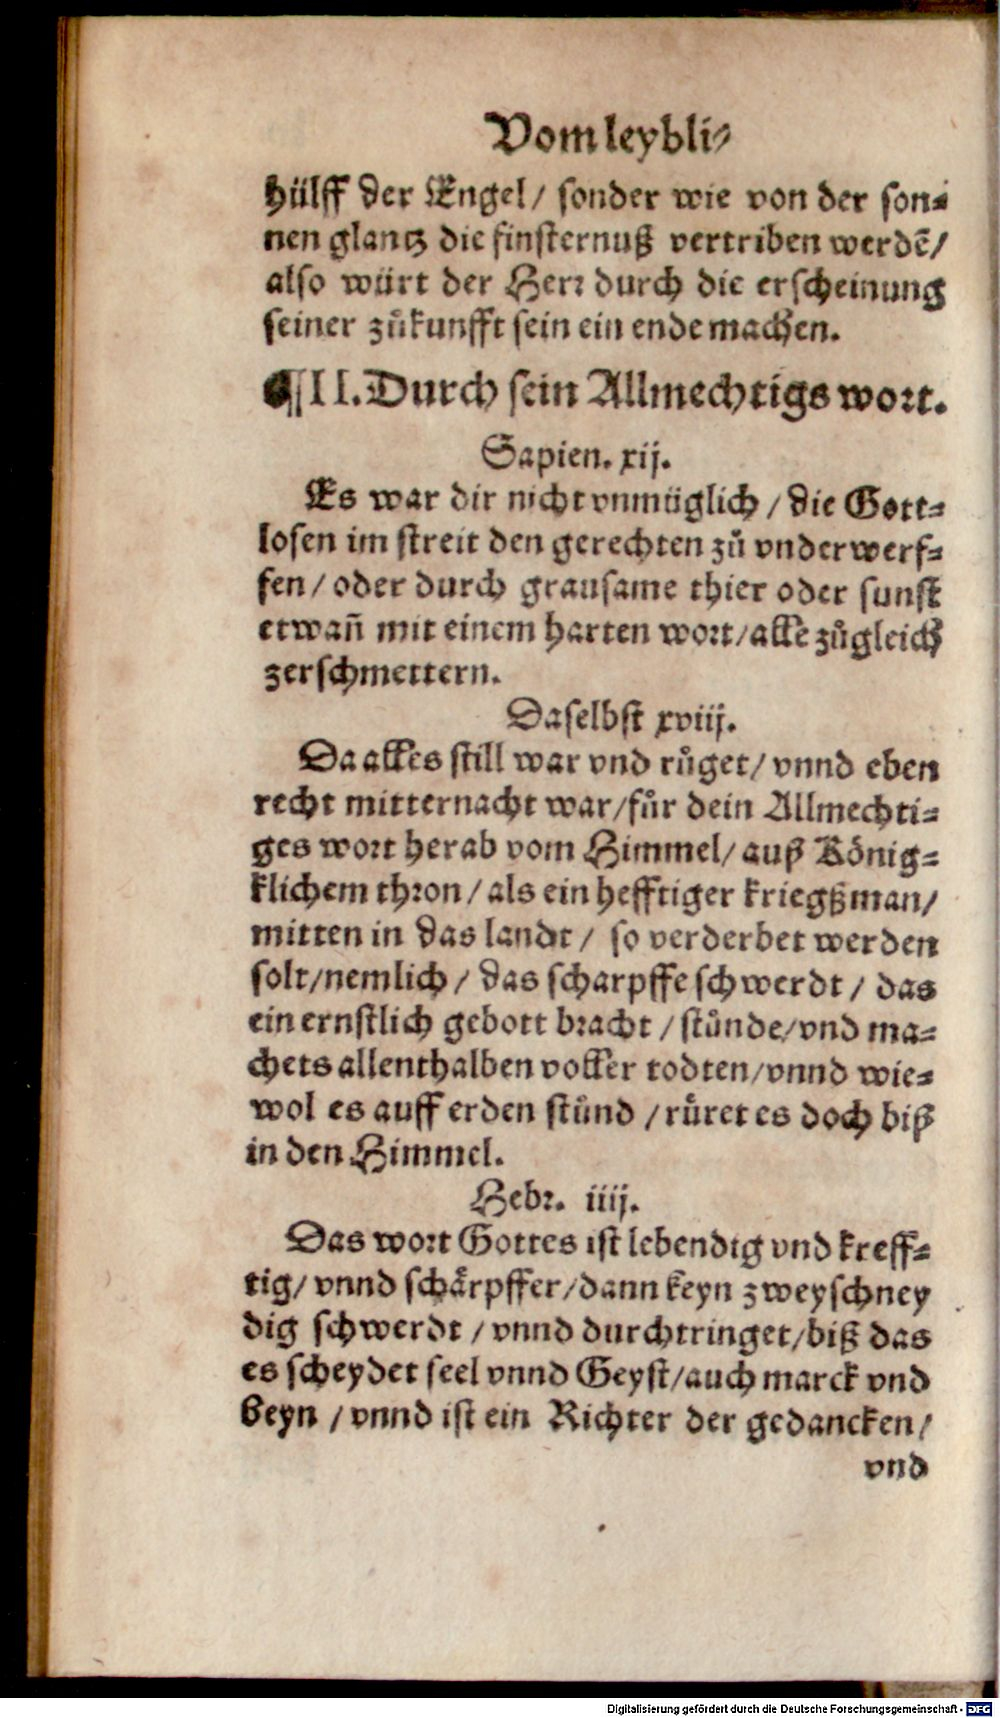 Vom leybli⸗
hülff der Engel/ sonder wie von der son⸗
nen glantz die finsternuß vertriben werdē/
also würt der Herr durch die erscheinung
seiner zůkunfft sein ein ende machen.
¶II. Durch sein Allmechtigs wort.
Sapien. xij.
Es war dir nicht vnmüglich / die Gott⸗
losen im streit den gerechten zů vnderwerf⸗
fen / oder durch grausame thier oder sunst
etwañ mit einem harten wort/alle zůgleich
zerschmettern.
Daselbst xviij.
Da alles still war vnd růget/ vnnd eben
recht mitternacht war/fůr dein Allmechti⸗
ges wort herab vom Himmel/ auß König⸗
klichem thron / als ein hefftiger kriegßman/
mitten in das landt / so verderbet werden
solt/nemlich / das scharpffe schwerdt / das
ein ernstlich gebott bracht / stůnde/vnd ma⸗
chets allenthalben voller todten/vnnd wie⸗
wol es auff erden stůnd / růret es doch biß
in den Himmel.
Hebr. iiij.
Das wort Gottes ist lebendig vnd kreff⸗
tig/ vnnd schärpffer/dann keyn zweyschney
dig schwerdt / vnnd durchtringet/biß das
es scheydet seel vnnd Geyst/auch marck vnd
beyn / vnnd ist ein Richter der gedancken/
vnd
Digitalisierung gefördert durch die Deutsche Forschungsgemeinschaft - DFG